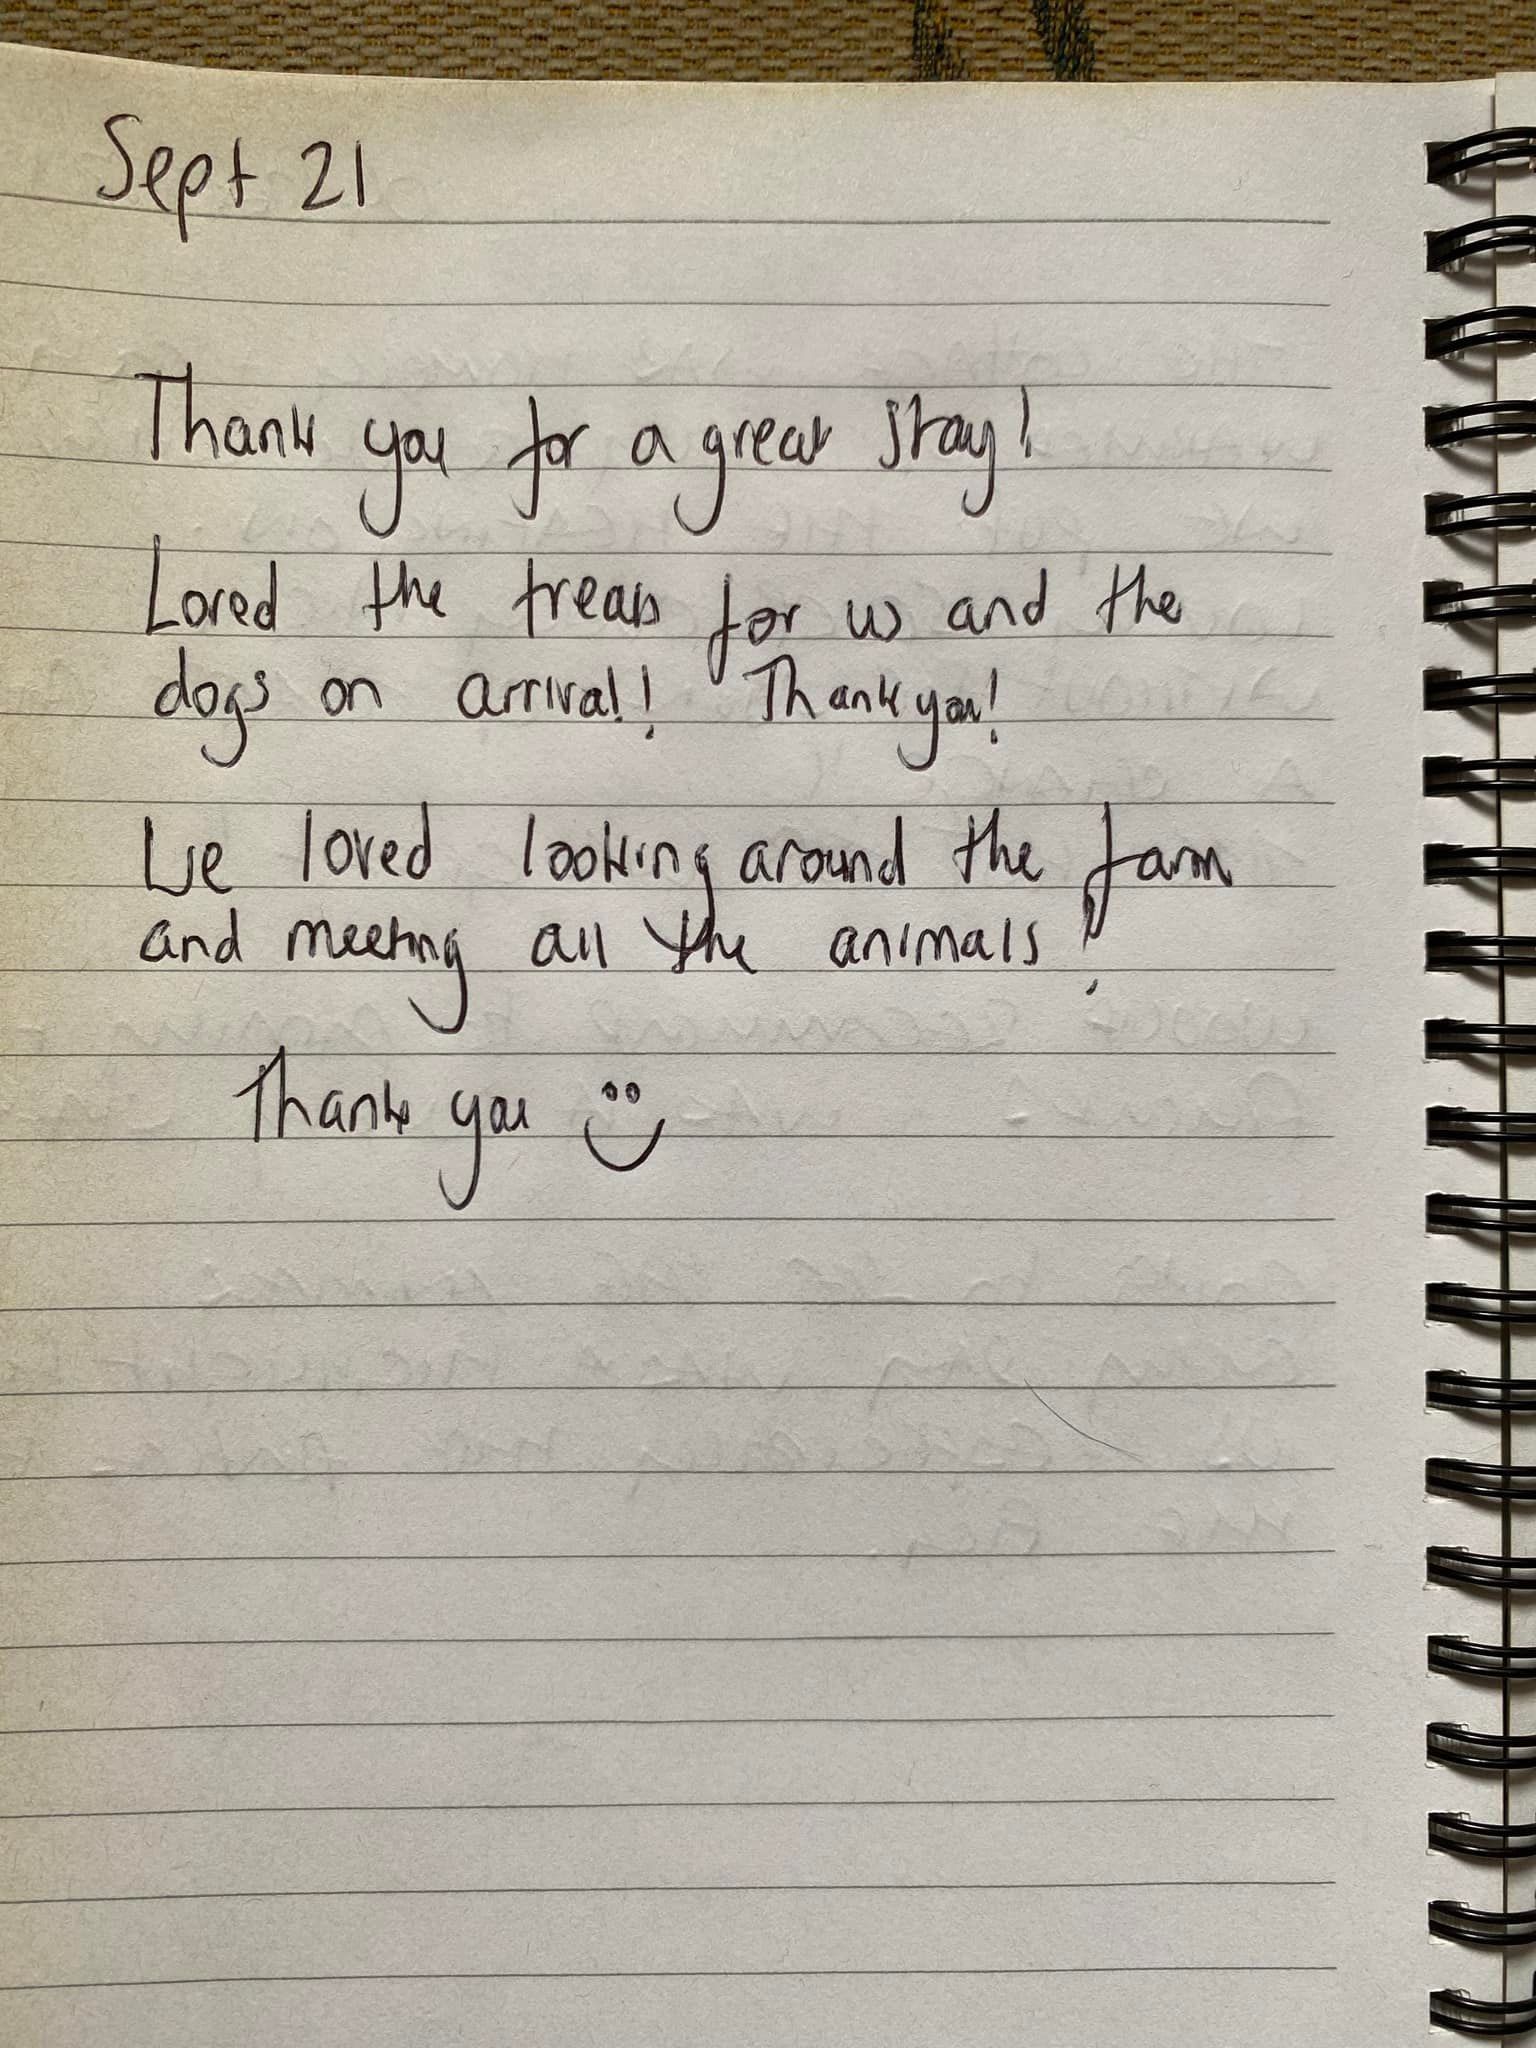 Sept 21
Thank you for a great stay!
Loved the treats for us and the
dogs on arrival! Thank you!
We loved looking around the farm
and meeting all the animals!
Thank you